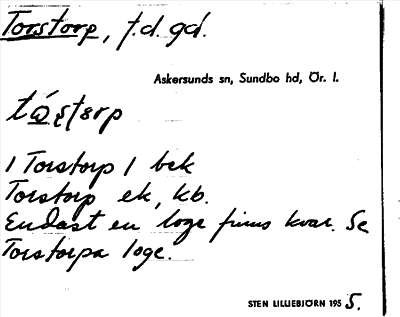 Torstorp, f.d. gd.
Askersunds sn, Sundbo hd, Ör. l.
tó̲ştorp
1 Torstorp 1 bek
Torstorp ek, kb.
Endast en loge finns kvar. Se
Torstorpa loge.
STEN LILLIEBJÖRN 1955.